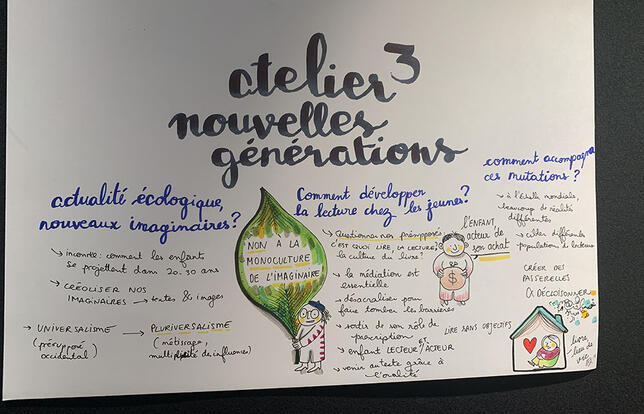 atelier 3
nouvelles
générations
actualité écologique,
nouveaux imaginaires?
→ incarné: comment les enfants
se projettent dans 20.30 ans
→ CRÉOLISER NOS
IMAGINAIRES → textes & images
→ UNIVERSALISME → PLURIVERSALISME
(présupposé (métissage,
occidental) multiplicité de influences)
NON À LA
MONOCULTURE
DE L'IMAGINAIRE
Comment développer
la lecture chez les jeunes?
→ Questionner nos présupposés
C'EST QUOI LIRE, LA LECTURE,
la culture du livre?
→ la médiation est
essentielle
→ désacraliser pour
faire tomber les barrières
→ sortir de son rôle de
prescription
→ enfant LECTEUR/ACTEUR
→ venir au texte grâce à
l'oralité
LIRE SANS OBJECTIFS
L'ENFANT
acteur de
son achat
$
comment accompagner
ces mutations?
→ à l'échelle mondiale,
beaucoup de réalités
différentes
→ cibler différentes
populations de lecteurs
CRÉER DES
PASSERELLES
DÉCLOISONNER
livre,
lieu de
vie